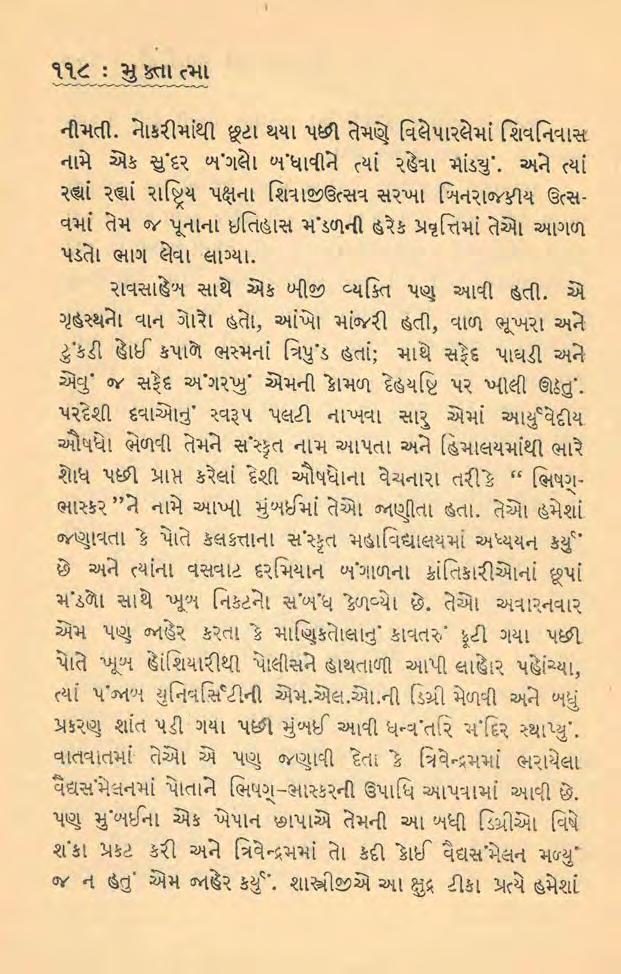 ૧૧૮ : મુ ક્તા ત્મા
નીમતી. નોકરીમાંથી છૂટા થયા પછી તેમણે વિલેપારલેમાં શિવનિવાસ
નામે એક સુંદર બંગલો બંધાવીને ત્યાં રહેવા માંડયું. અને ત્યાં
રહ્યાં રહ્યાં રાષ્ટ્રિય પક્ષના શિવાજીઉત્સવ સરખા બિનરાજકીય ઉત્સ-
વમાં તેમ જ પૂનાના ઇતિહાસ મંડળની હરેક પ્રવૃત્તિમાં તેઓ આગળ
પડતો ભાગ લેવા લાગ્યા.
રાવસાહેબ સાથે એક બીજી વ્યક્તિ પણ આવી હતી. એ
ગૃહસ્થનો વાન ગોરો હતો, આંખો માંજરી હતી, વાળ ભૂખરા અને
ટુંકડી હોઈ કપાળે ભસ્મનાં ત્રિપુંડ હતાં; માથે સફેદ પાઘડી અને
એવું જ સફેદ અંગરખું એમની કોમળ દેહયષ્ટિ પર ખીલી ઊઠતું.
પરદેશી દવાઓનું સ્વરૂપ પલટી નાખવા સારુ એમાં આયુર્વેદીય
ઔષધો ભેળવી તેમને સંસ્કૃત નામ આપતા અને હિમાલયમાંથી ભારે
શોધ પછી પ્રાપ્ત કરેલાં દેશી ઔષધોના વેચનારા તરીકે “ ભિષગ્-
ભાસ્કર ”ને નામે આખી મુંબઈમાં તેઓ જાણીતા હતા. તેઓ હમેશાં
જણાવતા કે પોતે કલકત્તાના સંસ્કૃત મહાવિદ્યાલયમાં અધ્યયન કર્યું
છે અને ત્યાંના વસવાટ દરમિયાન બંગાળના ક્રાંતિકારીઓનાં છૂપાં
મંડળો સાથે ખૂબ નિકટનો સંબંધ કેળવ્યો છે. તેઓ અવારનવાર
એમ પણ જાહેર કરતા કે માણિકતોલાનું કાવતરું ફૂટી ગયા પછી
પોતે ખૂબ હોંશિયારીથી પોલીસને હાથતાળી આપી લાહોર પહોંચ્યા,
ત્યાં પંજાબ યુનિવર્સિટીની એમ.એલ.ઓ.ની ડિગ્રી મેળવી અને બધું
પ્રકરણ શાંત પડી ગયા પછી મુંબઈ આવી ધન્વંતરિ મંદિર સ્થાપ્યું.
વાતવાતમાં તેઓ એ પણ જણાવી દેતા કે ત્રિવેન્દ્રમમાં ભરાયેલા
વૈદ્યસંમેલનમાં પોતાને ભિષગ્-ભાસ્કરની ઉપાધિ આપવામાં આવી છે.
પણ મુંબઈના એક ખેપાન છાપાએ તેમની આ બધી ડિગ્રીઓ વિષે
શંકા પ્રકટ કરી અને ત્રિવેન્દ્રમમાં તો કદી કોઈ વૈદ્યસંમેલન મળ્યું
જ ન હતું એમ જાહેર કર્યું. શાસ્ત્રીજીએ આ ક્ષુદ્ર ટીકા પ્રત્યે હમેશાં